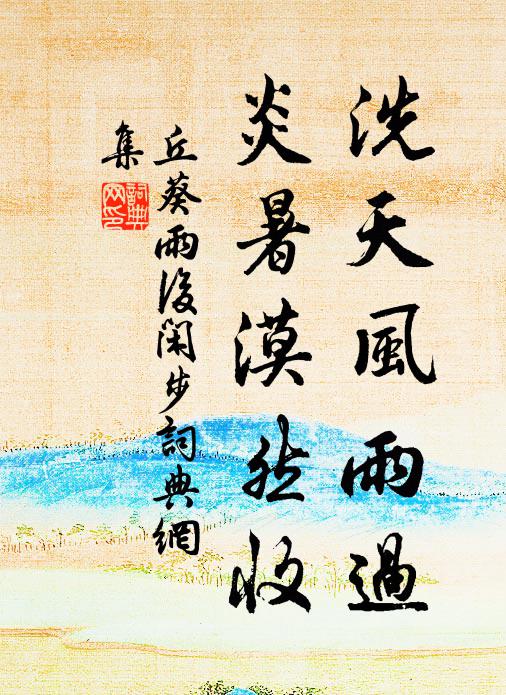 洗天風雨過
炎暑漠然收
丘葵雨後閑步詞典網
集
詞典
网印